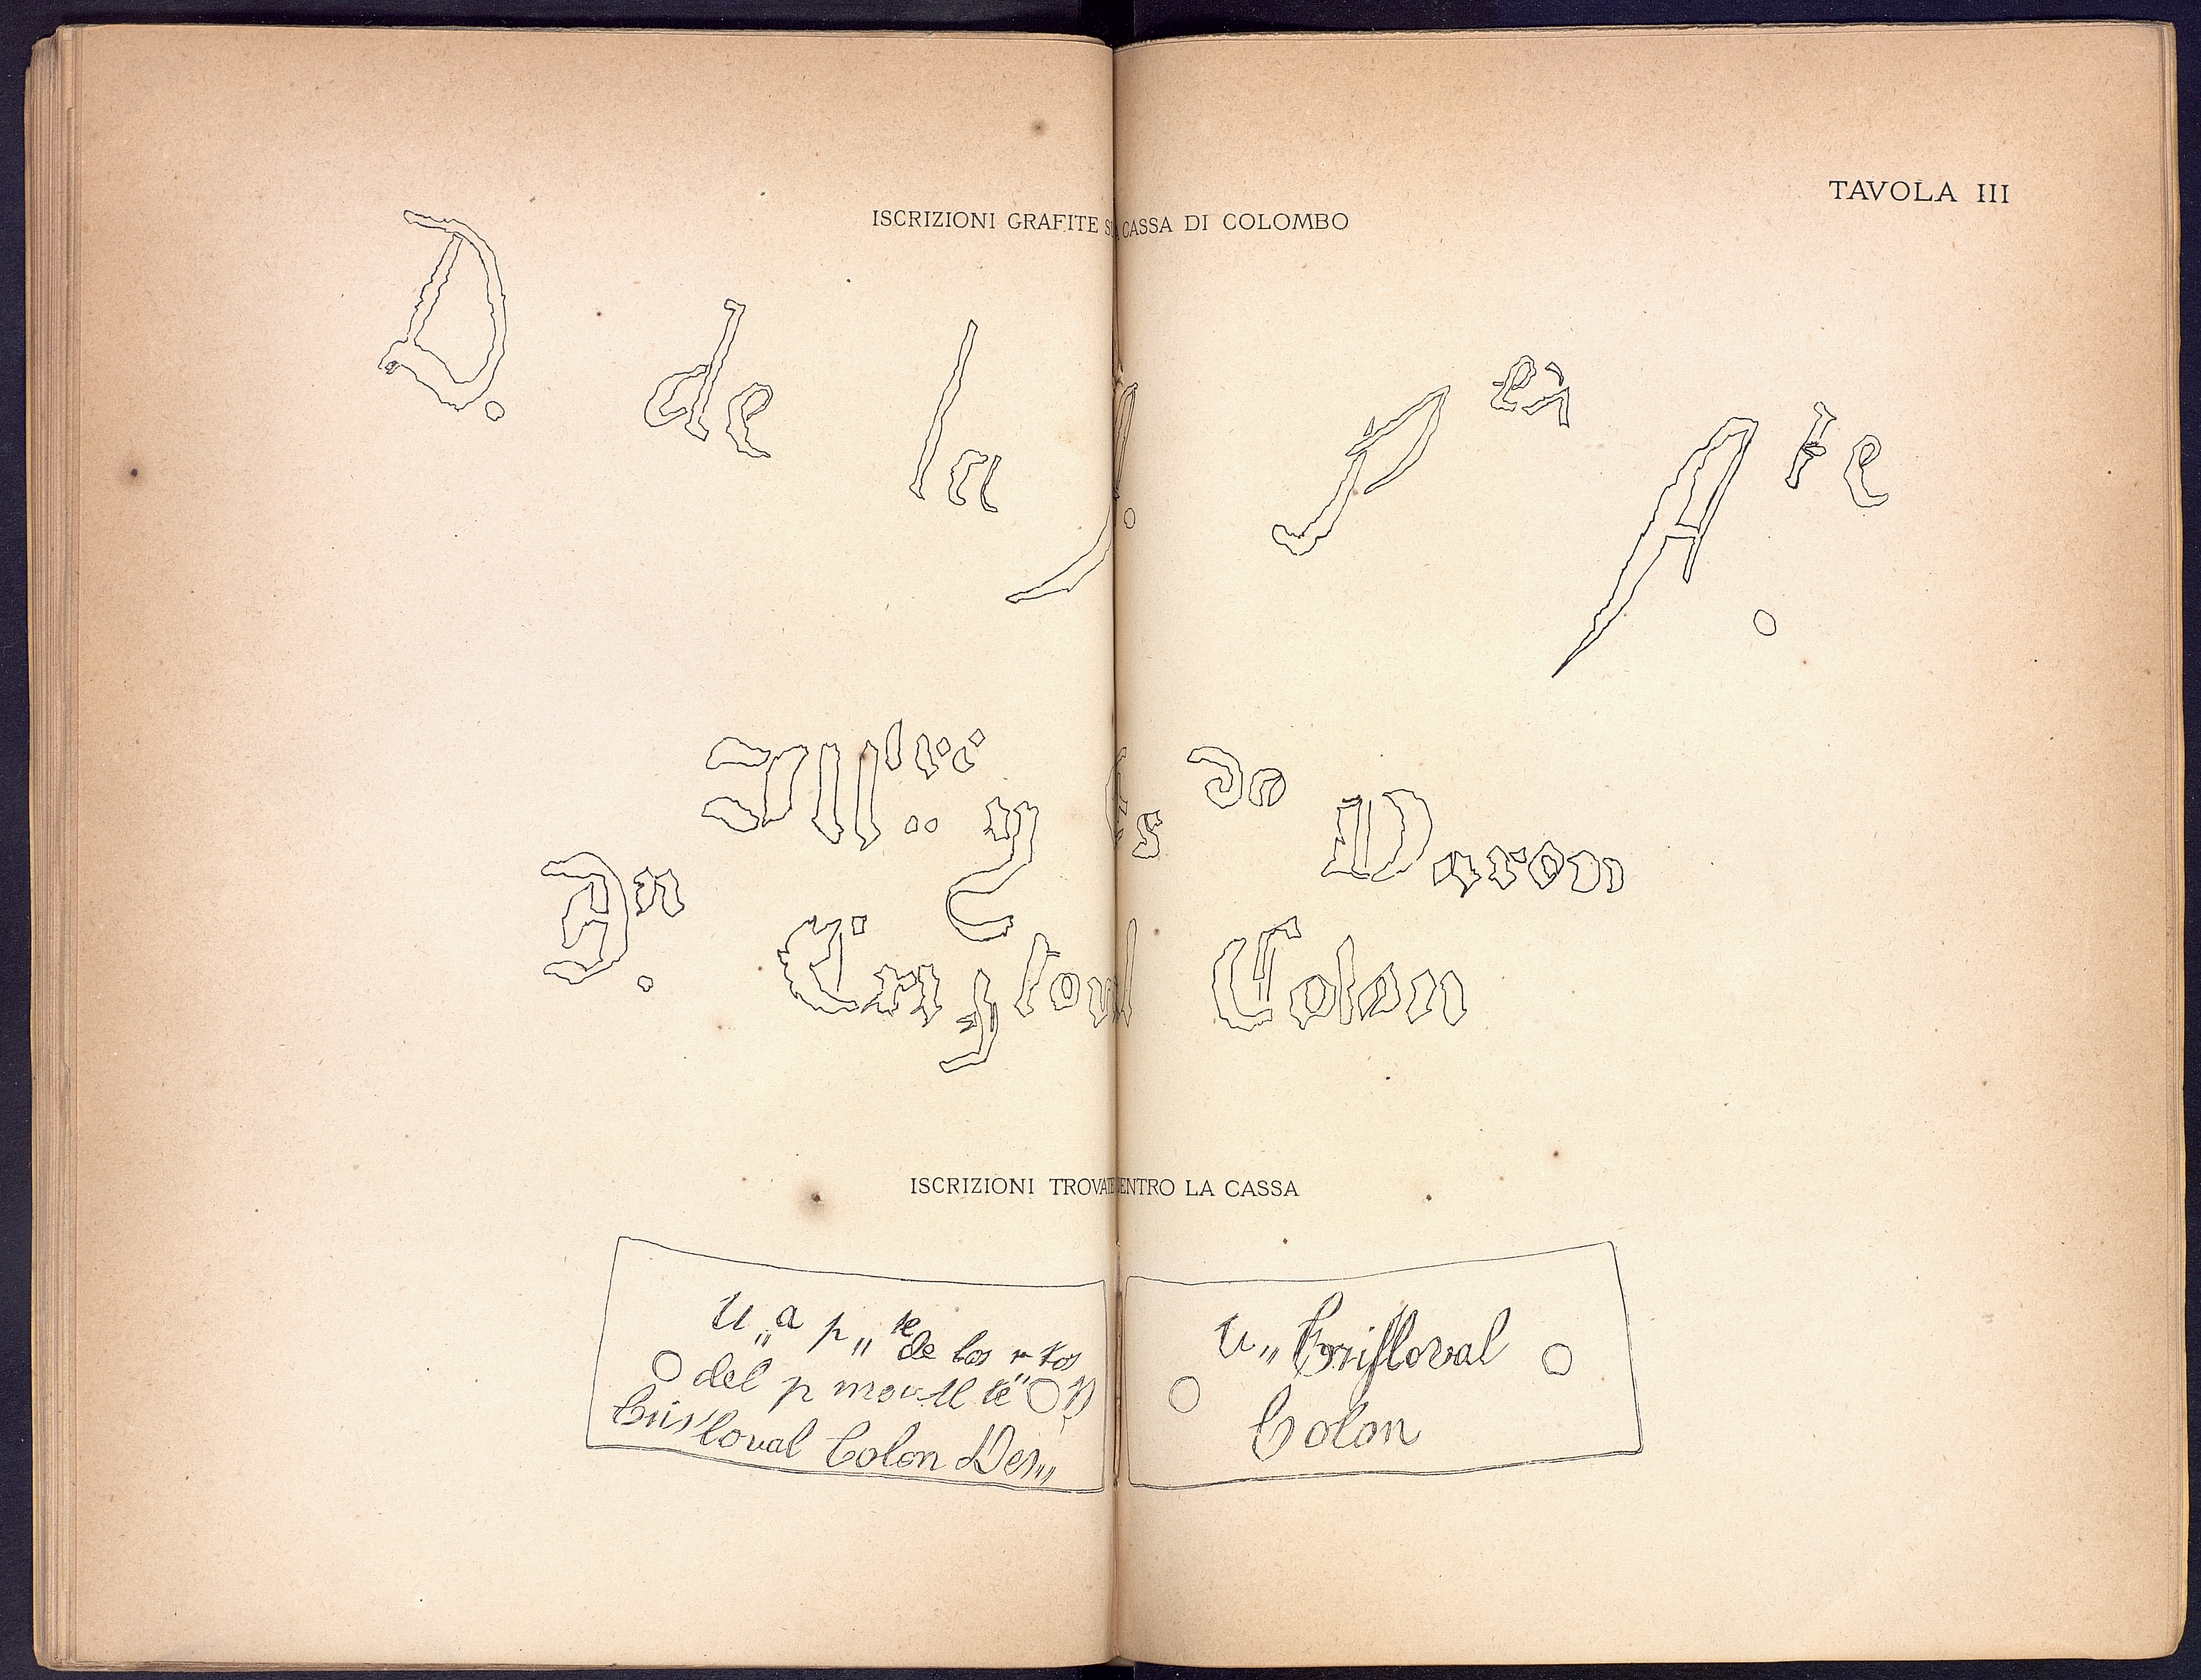 TAVOLA III
ISCRIZIONI GRAFITE CASSA DI COLOMBO
D. de la A. Per Ate.
Illtre. y Es do Varon
Dn. Cristoval Colon
ISCRIZIONI TROVATE DENTRO LA CASSA
U,, a p,, te de los r tos
del p mer Al te D
Cristoval Colon Des,,
U,, Cristoval
Colon